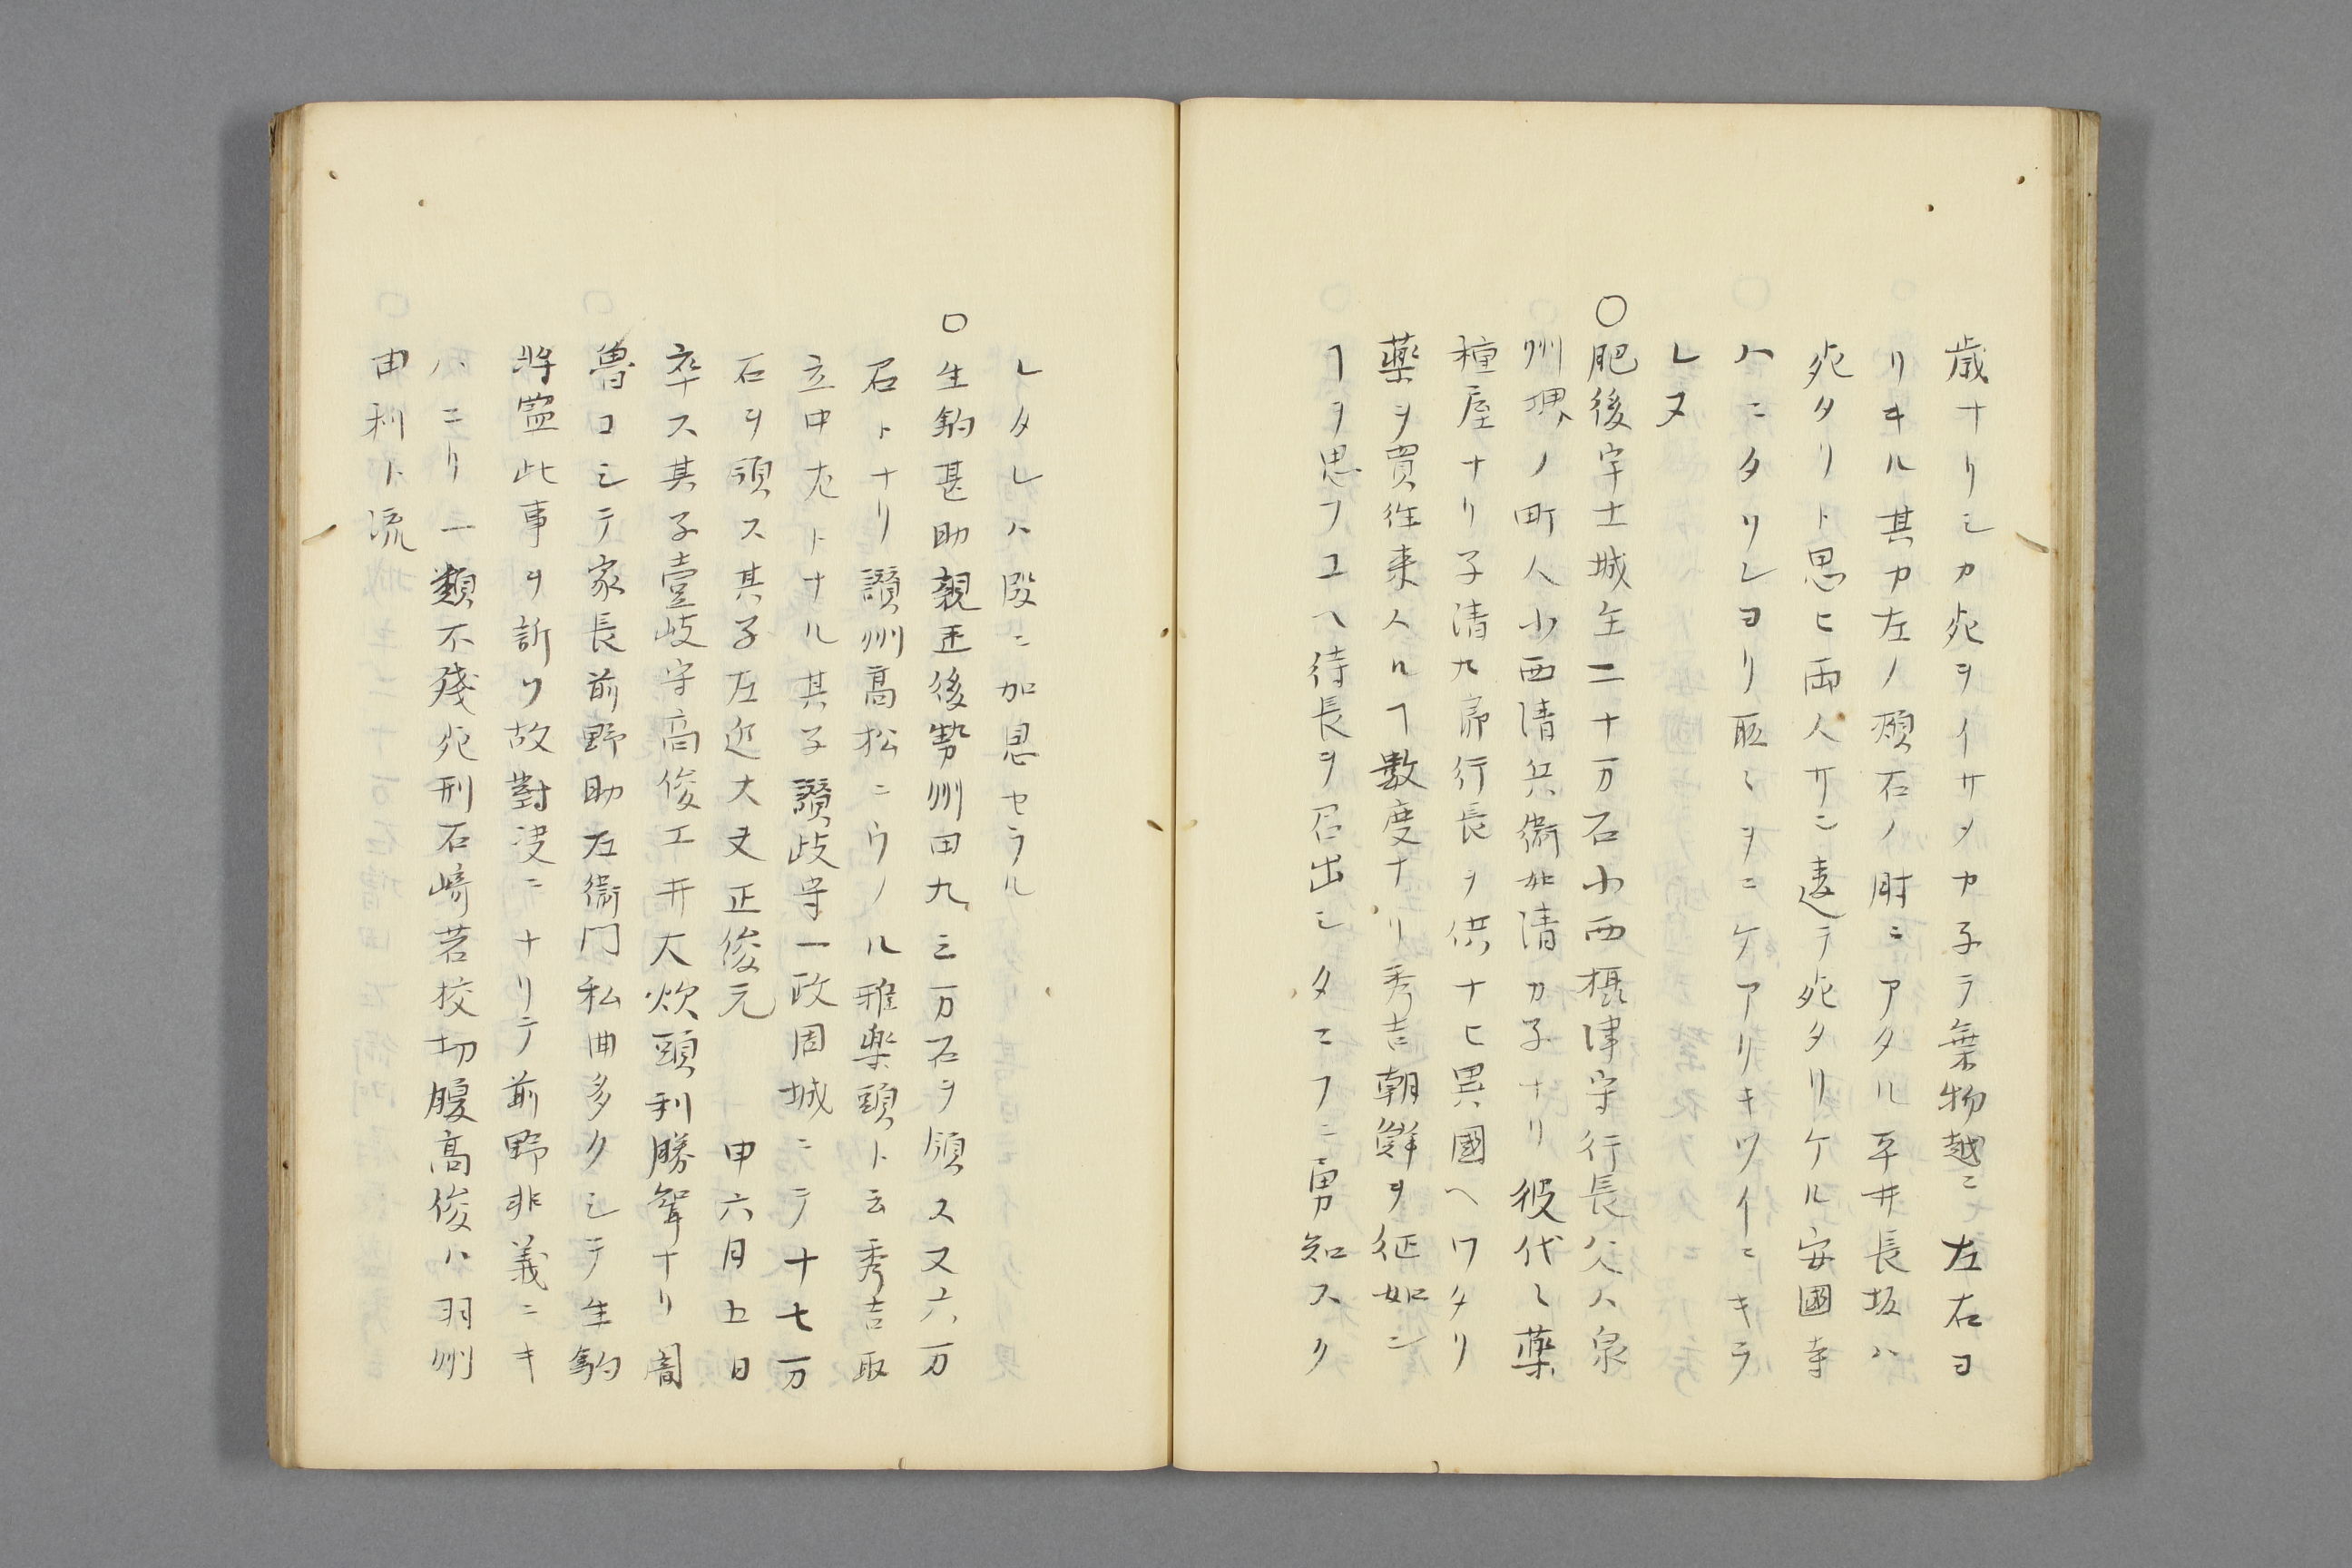 歳ナリシカ死ヲイサメカ子テ乗物越ニ左右ヨ
リキル其カ左ノ頬石ノ肘ニアタル平井長坂ハ
死タリト思ヒ両人サシ違テ死タリケル安國寺
ハニタリレヨリ耻〻ヲニケアリキツイニキラ
レヌ
○肥後宇土城主二十万石小西攝津守行長父ハ泉
州堺ノ町人小西清兵衛如清カ子ナリ役代〻藥
種屋ナリ子清九郎行長ヲ供ナヒ異國ヘワタリ
藥ヲ買往来人ルヿ數度ナリ秀吉朝鮮ヲ征如ン
ヿヲ思フユヘ待長ヲ召出シタニフニ勇知スク
レタレハ段ニ加恩セラル
○生駒甚助親正後勢州田丸三万石ヲ領ス又六万
石トナリ讃州高松ニウノル雅楽頭ト云秀吉取
立中尤トナル其子讃岐守一政周城ニテ十七万
石ヲ領ス其子左近大夫正俊元　申六月五日
卒ス其子壹岐守高俊工井大炊頭利勝聟ナリ闇
魯ニシテ家長前野助左衛門私曲多クシテ生駒
将監此事ヲ訴ワ故對决ニナリテ前野非義ニキ
ハニリ一類不殘死刑石﨑若狡切腹高俊ハ羽州
由利ト流